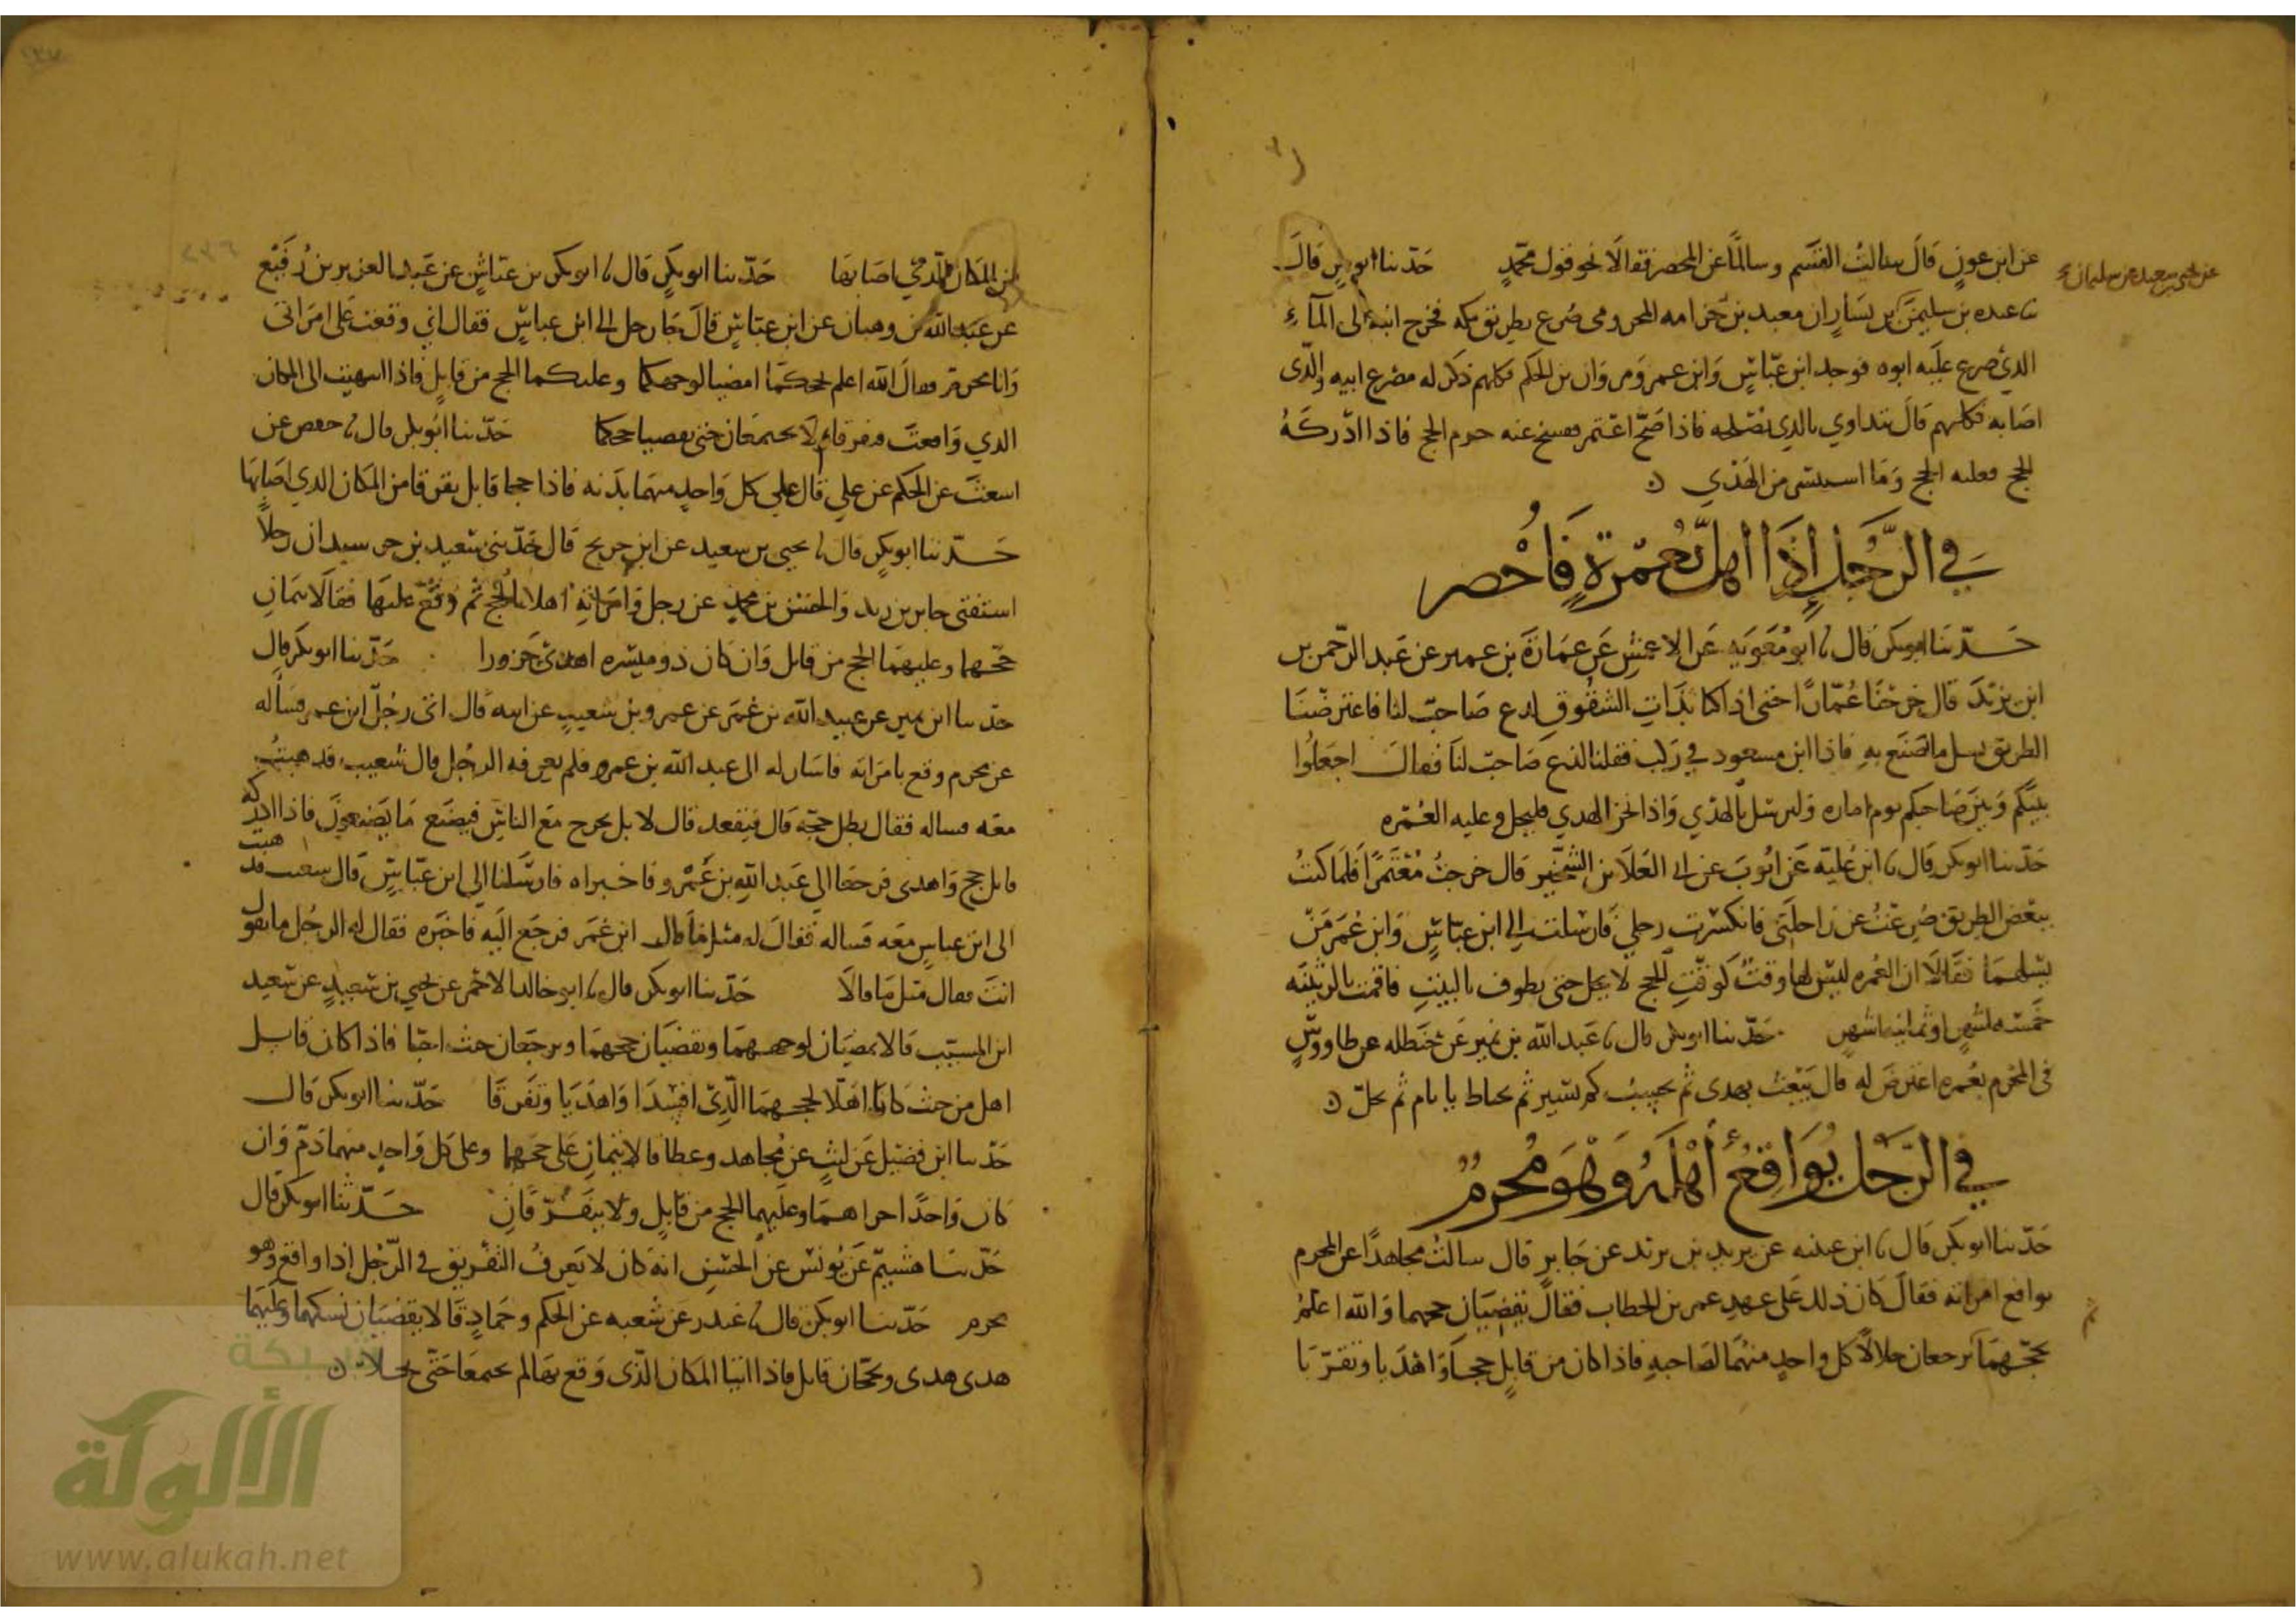 عن ابن عون قال سالت القسم وسالما عن المحصر فقالا نحو قول محمد حدثنا ابو بكر قال
عن يحيى بن سعيد عن سليمان
عبده بن سليمن بن يسار ان معبد بن حزامه المخزومي صرع بطريق مكه فخرج ابنه الى الماء
الذي صرع عليه ابوه فوجد ابن عباس وابن عمر ومروان بن الحكم فكلهم ذكر له مصرع ابيه والذى
اصابه فكلهم قال يتداوي بالذي يصلحه فاذا صح اعتمر ففسخ عنه حرم الحج فاذا ادركه
الحج فعليه الحج وما استيسر من الهدي
في الرَّجُلِ إِذَا اهلّ بعُمْرةٍ فَأُحْصر
حدثنا ابوبكر قال ابو معويه عن الاعمش عن عمارة بن عمير عن عبد الرحمن بن
ابن يزيد قال خرجنا عُمّارًا حتى اذا كنا بذات الشقوق لدغ صاحب لنا فاعترضنا
الطريق نسل ما نصنع به فاذا ابن مسعود في ركب فقلنا لدغ صاحب لنا فقال اجعلوا
بينكم وبين صاحبكم يوم اماره وليرسل بالهدي واذا نحر الهدي فليحل وعليه العمره
حدثنا ابوبكر قال ابن عليه عن ايوب عن ابي العلا بن الشخير قال خرجت معتمرا فلما كنت
ببعض الطريق صرعت عن راحلتي فانكسرت رجلي فارسلت الى ابن عباس وابن عمر من
يسلهما فقالا ان العمره ليس لها وقت كوقت الحج لا يحل حتى يطوف بالبيت فاقمت بالدثينه
خمسه اشهر او ثمانيه اشهر حدثنا ابوبكر قال عبد الله بن نمير عن حنظله عن طاووس
فى المحرم بعمره اعترض له قال يبعث بهدى ثم يحسب كم يسير ثم يحتاط بايام ثم يحل
في الرَّجُلِ يُوَاقِعُ أَهْلَهُ وَهْوَ مُحْرِمٌ
حدثنا ابوبكر قال ابن عيينه عن يزيد بن يزيد عن جابر قال سالت مجاهدا عن المحرم
يواقع امراته فقال كان ذلك على عهد عمر بن الخطاب فقال يقضيان حجهما والله اعلم
بحجهما يرجعان حلالا كل واحد منهما لصاحبه فاذا كان من قابل حجا واهديا وتفرقا
من المكان الذي اصابها حدثنا ابوبكر قال ابوبكر بن عياش عن عبد العزيز بن رفيع
عن عبد الله بن وهبان عن ابن عباس قال جا رجل الى ابن عباس فقال اني وقعت على امراتى
وانا محرم فقال الله اعلم بحجكما امضيا لوجهكما وعليكما الحج من قابل فاذا انتهيت الى المكان
الذي واقعت فتفرقا ولا تجتمعان حتى تقضيا حجكما حدثنا ابوبكر قال حفص عن
اسعث عن الحكم عن علي قال علي كل واحد منهما بدنه فاذا حجا قابل تفرقا من المكان الذي اصابها
حدثنا ابوبكر قال يحيى بن سعيد عن ابن جريج قال حدثنى سعيد بن ان رجلا
استفتى جابر بن زيد والحسن بن محمد عن رجل وامراته اهلا بالحج ثم وقع عليها فقالا يتمان
حجهما وعليهما الحج من قابل وان كان ذو ميسره اهدى جزورا حدثنا ابوبكر قال
حدثنا ابن نمير عن عبيد الله بن عمر عن عمرو بن شعيب عن ابيه قال اتى رجل ابن عمر فساله
عن محرم وقع بامراته فاشار له الى عبد الله بن عمرو فلم يعرفه الرجل قال شعيب فذهبت
معه فساله فقال بطل حجه قال فيقعد قال لا بل يخرج مع الناس فيصنع ما يصنعون فاذا ادركه
قابل حج واهدى فرجعا الى عبد الله بن عمرو فاخبراه فارسلنا الى ابن عباس قال شعيب فذهبت
الى ابن عباس معه فساله فقال له مثل ما قال ابن عمر فرجع اليه فاخبره فقال له الرجل ما تقول
انت فقال مثل ما قالا حدثنا ابوبكر قال ابو خالد الاحمر عن يحيي بن سعيد عن سعيد
ابن المسيب قالا يمضيان لوجههما ويقضيان حجهما ويرجعان حيث احبا فاذا كان قابل
اهل من حيث كانا اهلا لحجهما الذي افسدا واهديا وتفرقا حدثنا ابوبكر قال
حدثنا ابن فضيل عن ليث عن مجاهد وعطا قالا يتمان على حجهما وعلى كل واحد منهما دم وان
كان واحدا اجزاهما وعليهما الحج من قابل ولا يتفرقان حدثنا ابوبكر قال
حدثنا هشيم عن يونس عن الحسن انه كان لا يعرف التفريق في الرجل اذا واقع وهو
محرم حدثنا ابوبكر قال غندر عن شعبه عن الحكم وحماد قالا يقضيان نسكهما وعليهما
هدى هدى ويحجان قابل فاذا اتيا المكان الذى وقع بها لم يجتمعا حتى يحلا
شبكة
الألوكة
www.alukah.net